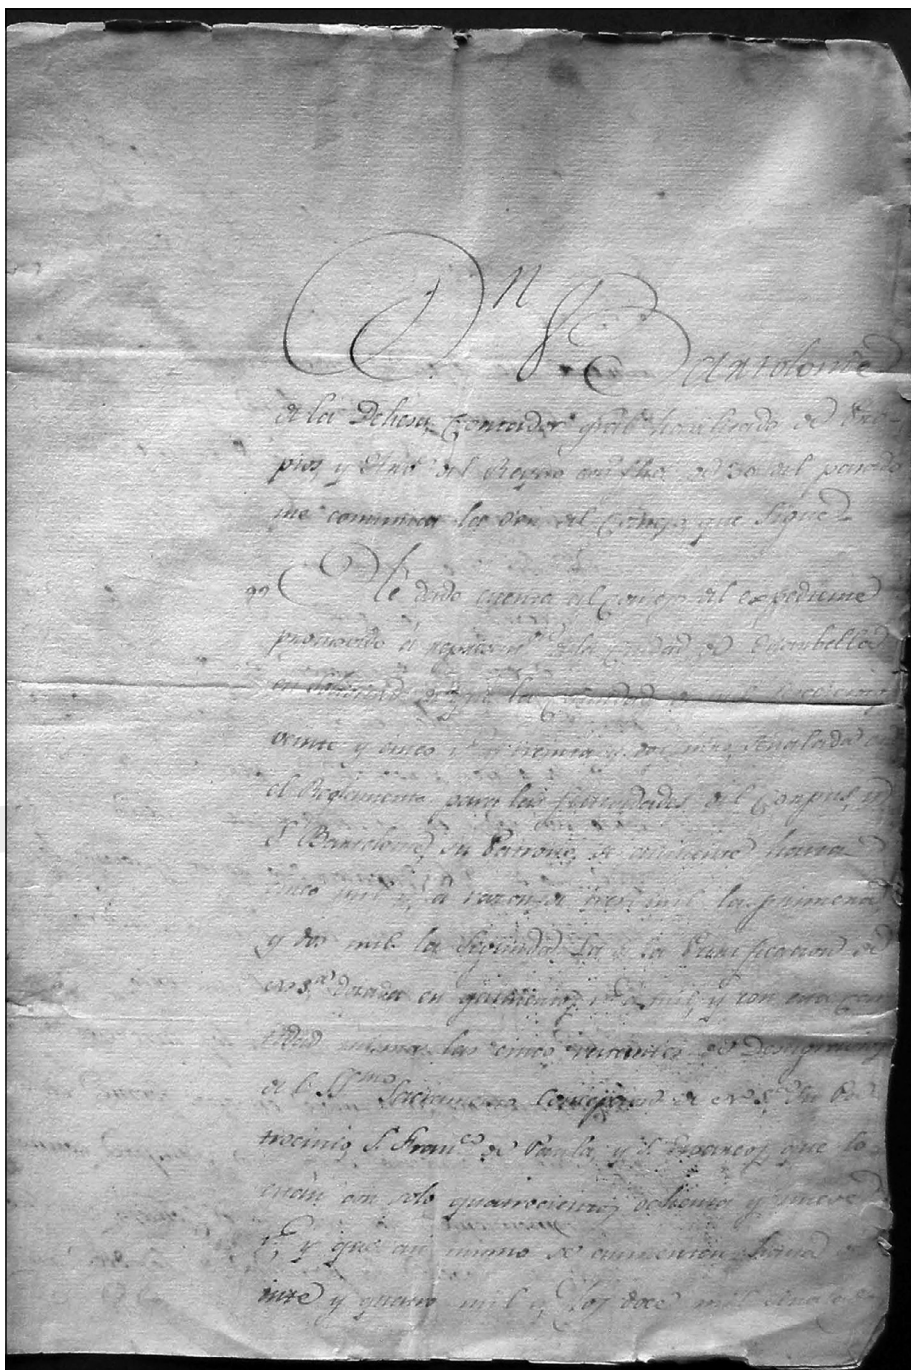 Dn Bartolome
de la Dehesa, Contador gral havilitado de Pro-
pios, y del Reyno con fha de 30 del pasado
me comunica la Orn del Consejo que sigue
He dado cuenta al Consejo del expediente
promovido a de la Ciudad de Marbella
en que la Cantidad de mil
veinte y cinco rs y treinta y dos mrs señalada en
el Reglamento para las festividades del Corpus, y
Sn Bartolome su Patrono, se aumente hasta
cinco mil rs, a razon de tres mil la primera
y dos mil la segunda La de la Purificacion de
N Sra dotada en quinientos rs a mil, y con esta can
tidad misma las cinco restantes de Desagravios
de el SSmo Sacramento de N Sra Su Pa
trocinio Sn Franco de Paula, y Sn que lo
estan con solo quatrocientos ochenta y nueve
rs, y que asi mismo se aumenten hasta
inte y quatro mil rs, los doce mil